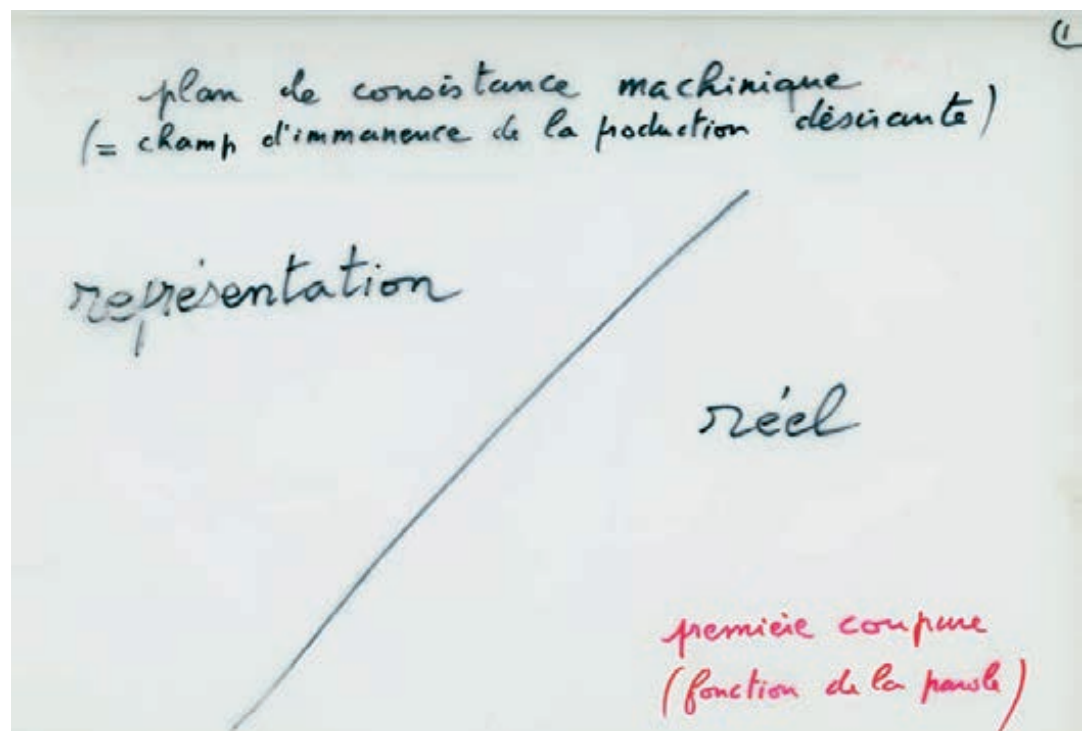 (1
plan de consistance machinique
(= champ d'immanence de la production désirante)
représentation
réel
première coupure
(fonction de la parole)